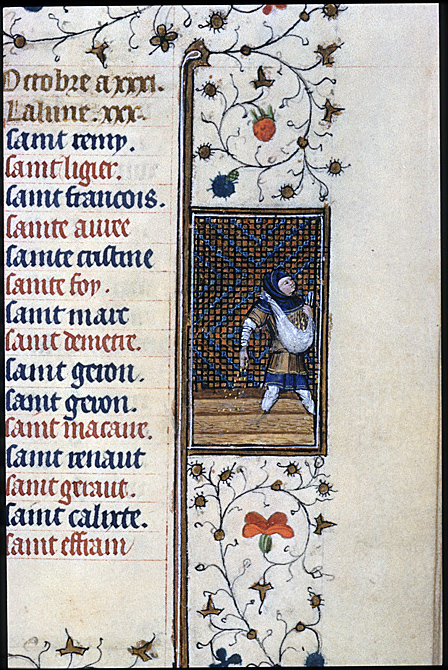 Octobre a xxxi.
La lune. xxx.
saint remy.
saint ligier.
saint francois.
sainte auree
sainte cristine
sainte foy.
saint marc
saint demetre.
saint geron.
saint geron.
saint macaire.
saint renaut
saint geraut.
saint calixte.
saint effrain